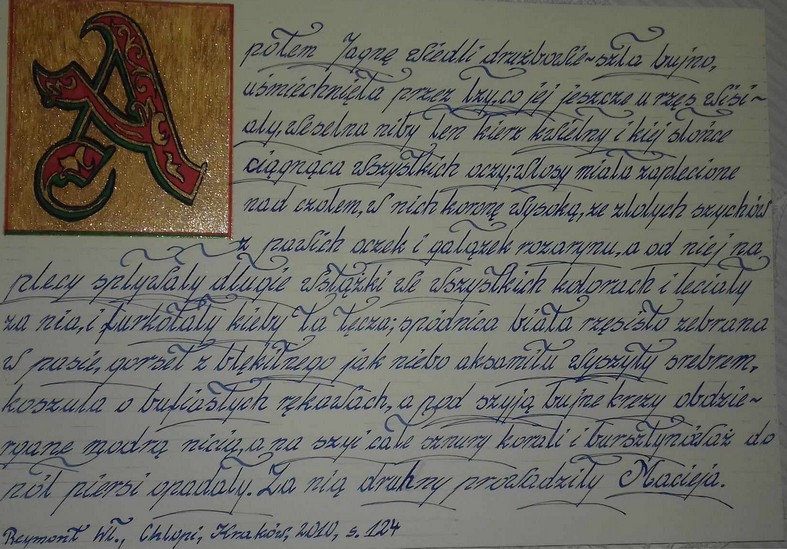 A
potem Jagnę wiedli drużbowie~szła bujno,
uśmiechnięta przez łzy, co jej jeszcze u rzęs wisi~
ały, weselna niby ten kierz kwietny i kiej słońce
ciągnąca wszystkich oczy; włosy miała zaplecione
nad czołem, w nich koronę wysoką, ze złotych szychów
z pawich oczek i gałązek rozarynu, a od niej na
plecy spływały długie wstążki we wszystkich kolorach i leciały
za nią, i furkotały kieby ta tęcza; spódnica biała rzęsisto zebrana
w pasie, gorset z błękitnego jak niebo aksamitu wyszyty srebrem,
koszula o bufiastych rękawach, a pod szyją bujne krezy obdzie~
rgane modrą nicią, a na szyi całe sznury korali i bursztynów aż do
pół piersi opadały. Za nią druhny prowadziły Macieja.
Reymont Wł., Chłopi, Kraków, 2010, s. 124